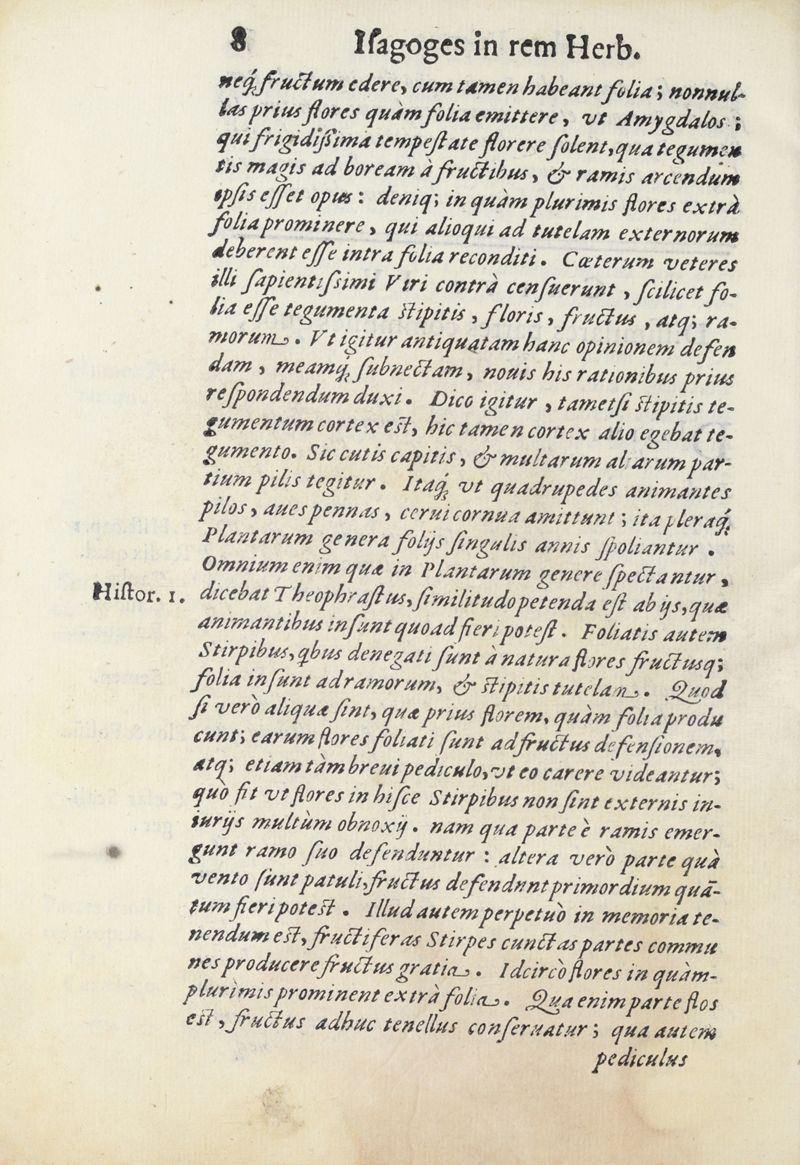 8 Iſagoges in rem Herb.
neq́; fructum edere, cum tamen habeant folia; nonnul-
las prius flores quàm folia emittere, vt Amygdalos;
qui frigidiſsima tempeſtate florere ſolent, qua tegumen
tis magis ad boream à fructibus, & ramis arcendum
ipſis eſſet opus: deniq; in quàm plurimis flores extrà
folia prominere, qui alioqui ad tutelam externorum
deberent eſſe intra folia reconditi. Cœterum veteres
illi ſapientiſsimi Viri contrà cenſuerunt, ſcilicet fo-
lia eſſe tegumenta ſtipitis, floris, fructus, atq; ra-
morum. Vt igitur antiquatam hanc opinionem defen
dam, meamq́; ſubnectam, nouis his rationibus prius
reſpondendum duxi. Dico igitur, tametſi ſtipitis te-
gumentum cortex eſt, hic tamen cortex alio egebat te-
gumento. Sic cutis capitis, & multarum aliarum par-
tium pilis tegitur. Itaq́; vt quadrupedes animantes
pilos, aues pennas, cerui cornua amittunt; ita pleraq́;
Plantarum genera folijs ſingulis annis ſpoliantur.
Omnium enim quæ in Plantarum genere ſpectantur,
Hiſtor. 1. dicebat Theophraſtus, ſimilitudo petenda eſt ab ijs, quæ
animantibus inſunt quoad fieri poteſt. Foliatis autem
Stirpibus, qbus denegati ſunt à natura flores fructusq;
folia inſunt ad ramorum, & ſtipitis tutelam. Quod
ſi verò aliquæ ſint, quæ prius florem, quàm folia produ
cunt; earum flores foliati ſunt ad fructus defenſionem,
atq; etiam tàm breui pediculo, vt eo carere videantur;
quo fit vt flores in hiſce Stirpibus non ſint externis in-
iurijs multùm obnoxij. nam qua parte è ramis emer-
gunt ramo ſuo defenduntur: altera verò parte quà
vento ſunt patuli, fructus defendunt primordium quā-
tum fieri poteſt. Illud autem perpetuò in memoria te-
nendum eſt, fructiferas Stirpes cunctas partes commu
nes producere fructus gratia. Idcircò flores in quàm-
plurimis prominent extrà folia. Qua enim parte flos
eſt, fructus adhuc tenellus conſeruatur; qua autem
pediculus